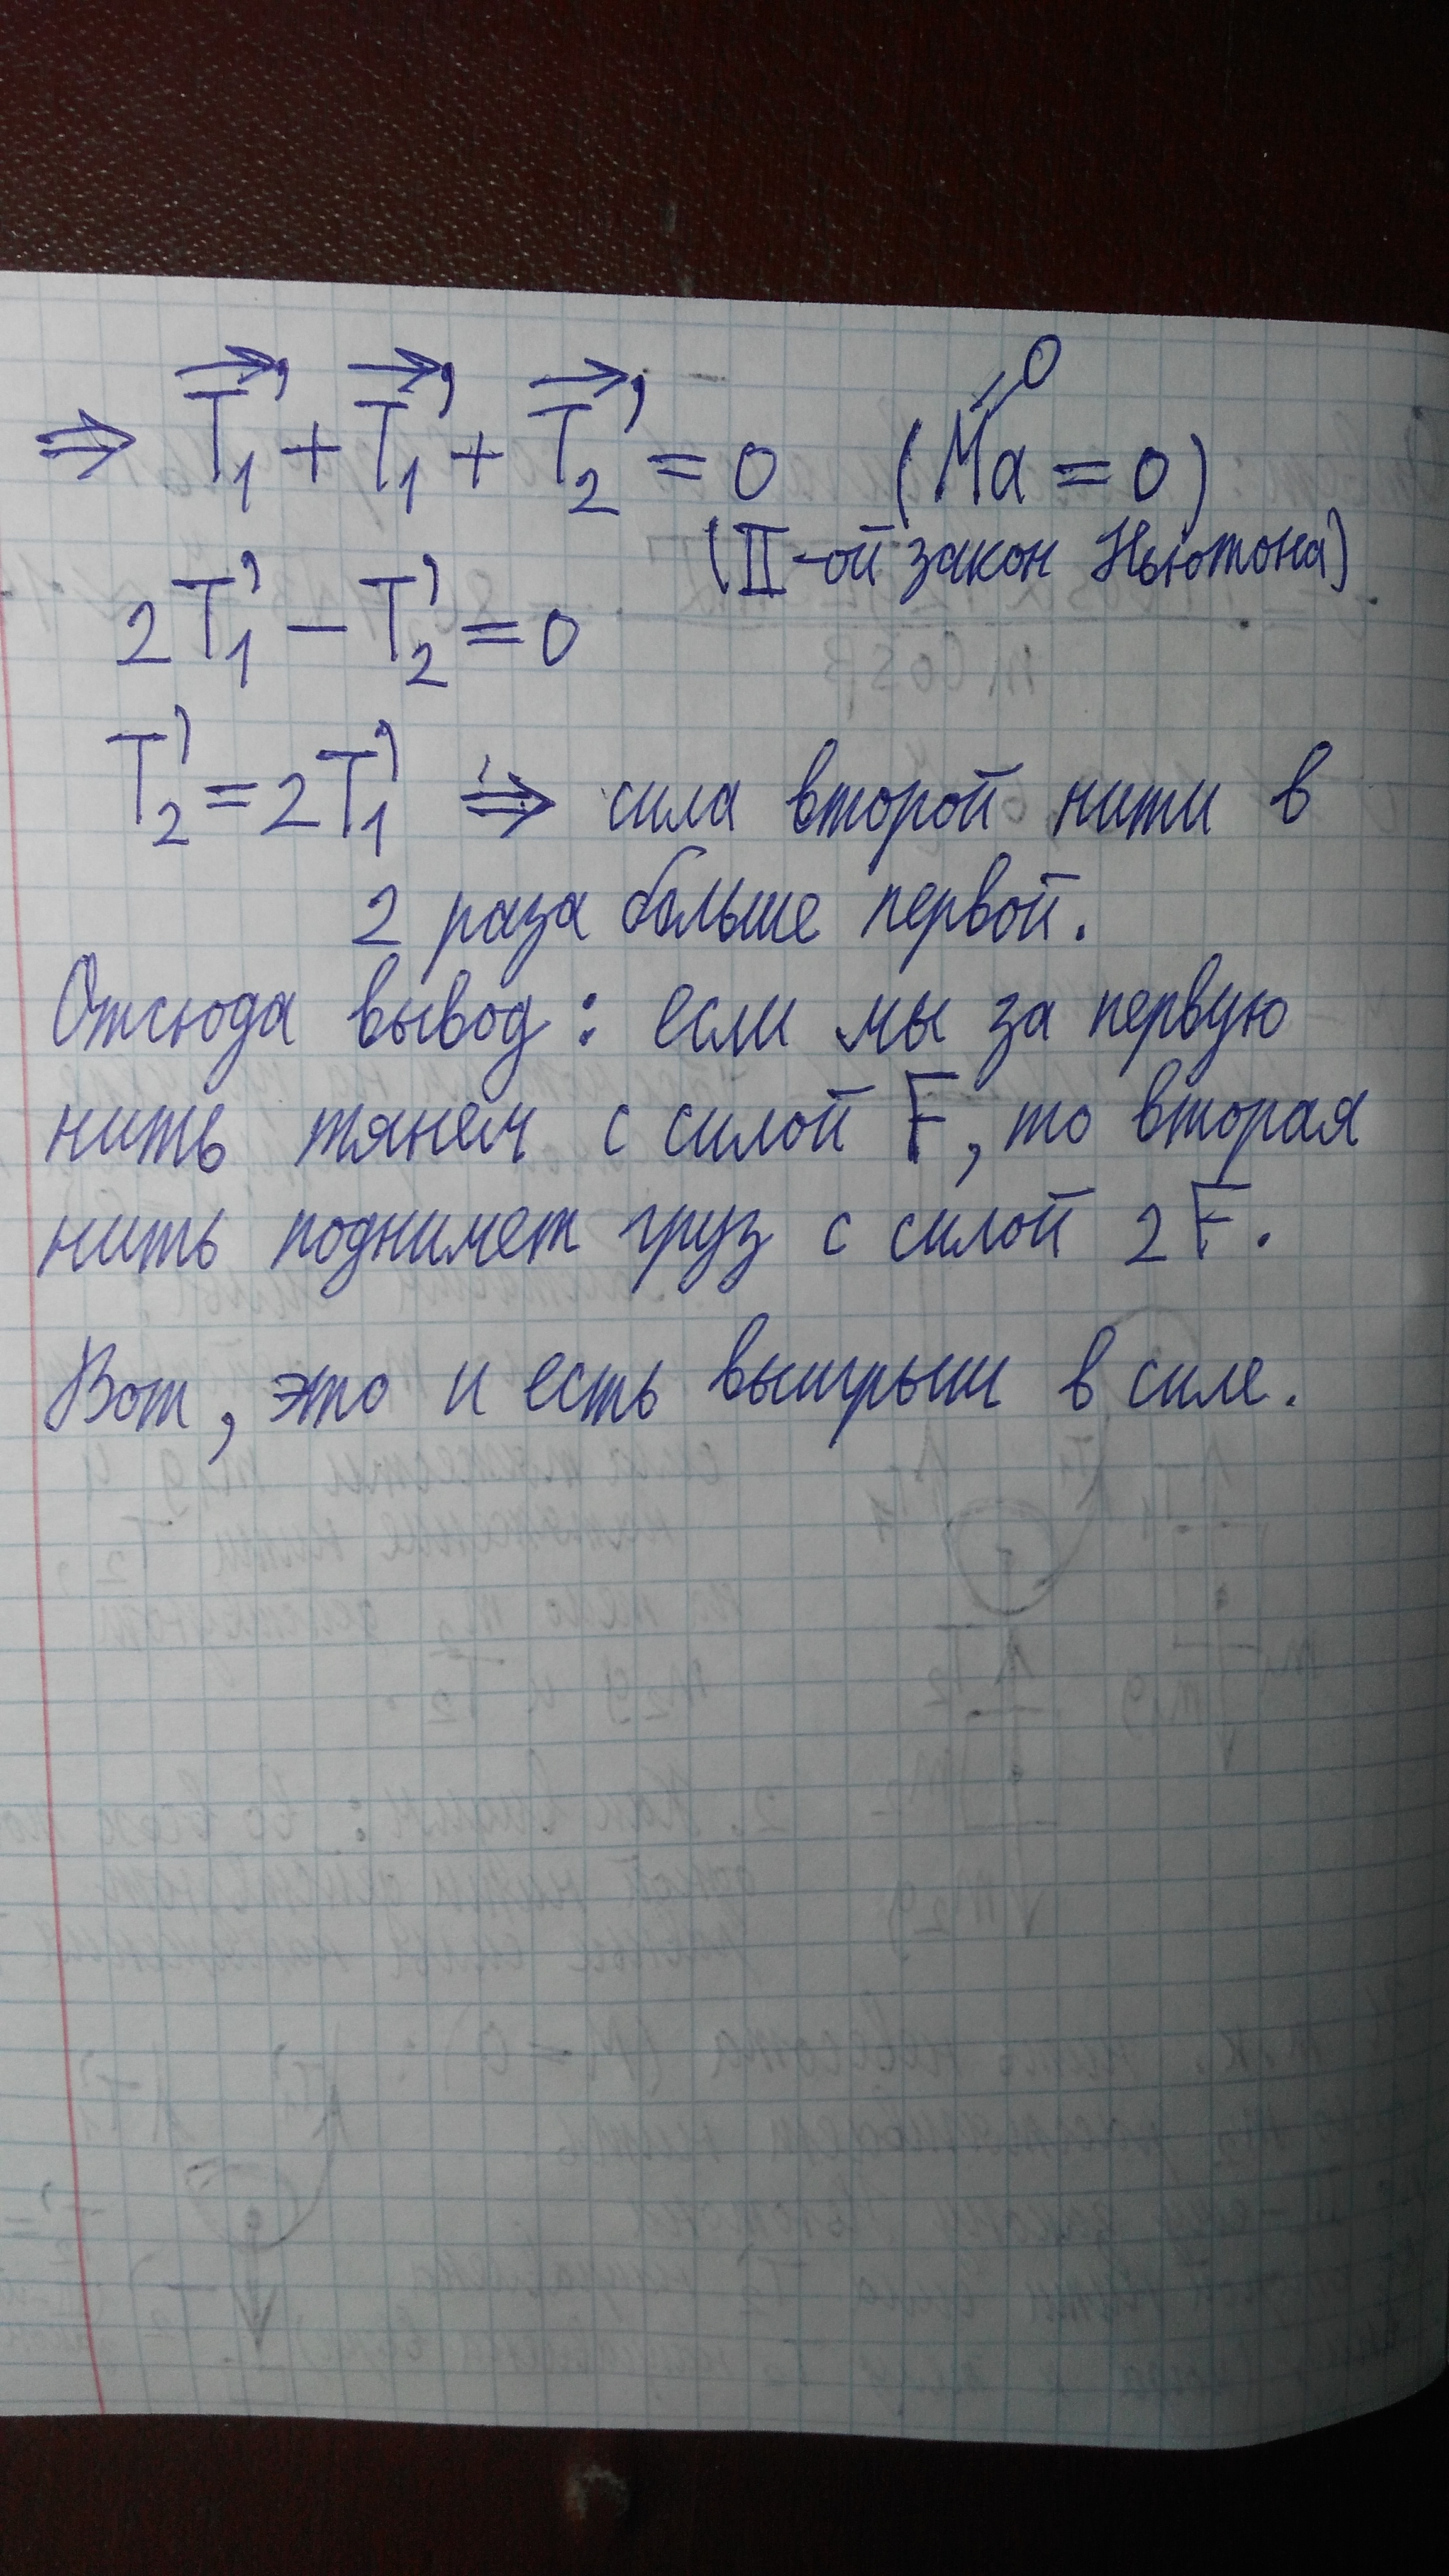 ⇒ T₁' + T₁' + T₂' = 0 (Ma = 0) = 0
(II-ой закон Ньютона)
2T₁' − T₂' = 0
T₂' = 2T₁' ⇒ сила второй нити в
2 раза больше первой.
Отсюда вывод: если мы за первую
нить тянем с силой F, то вторая
нить поднимет груз с силой 2F.
Вот, это и есть выигрыш в силе.